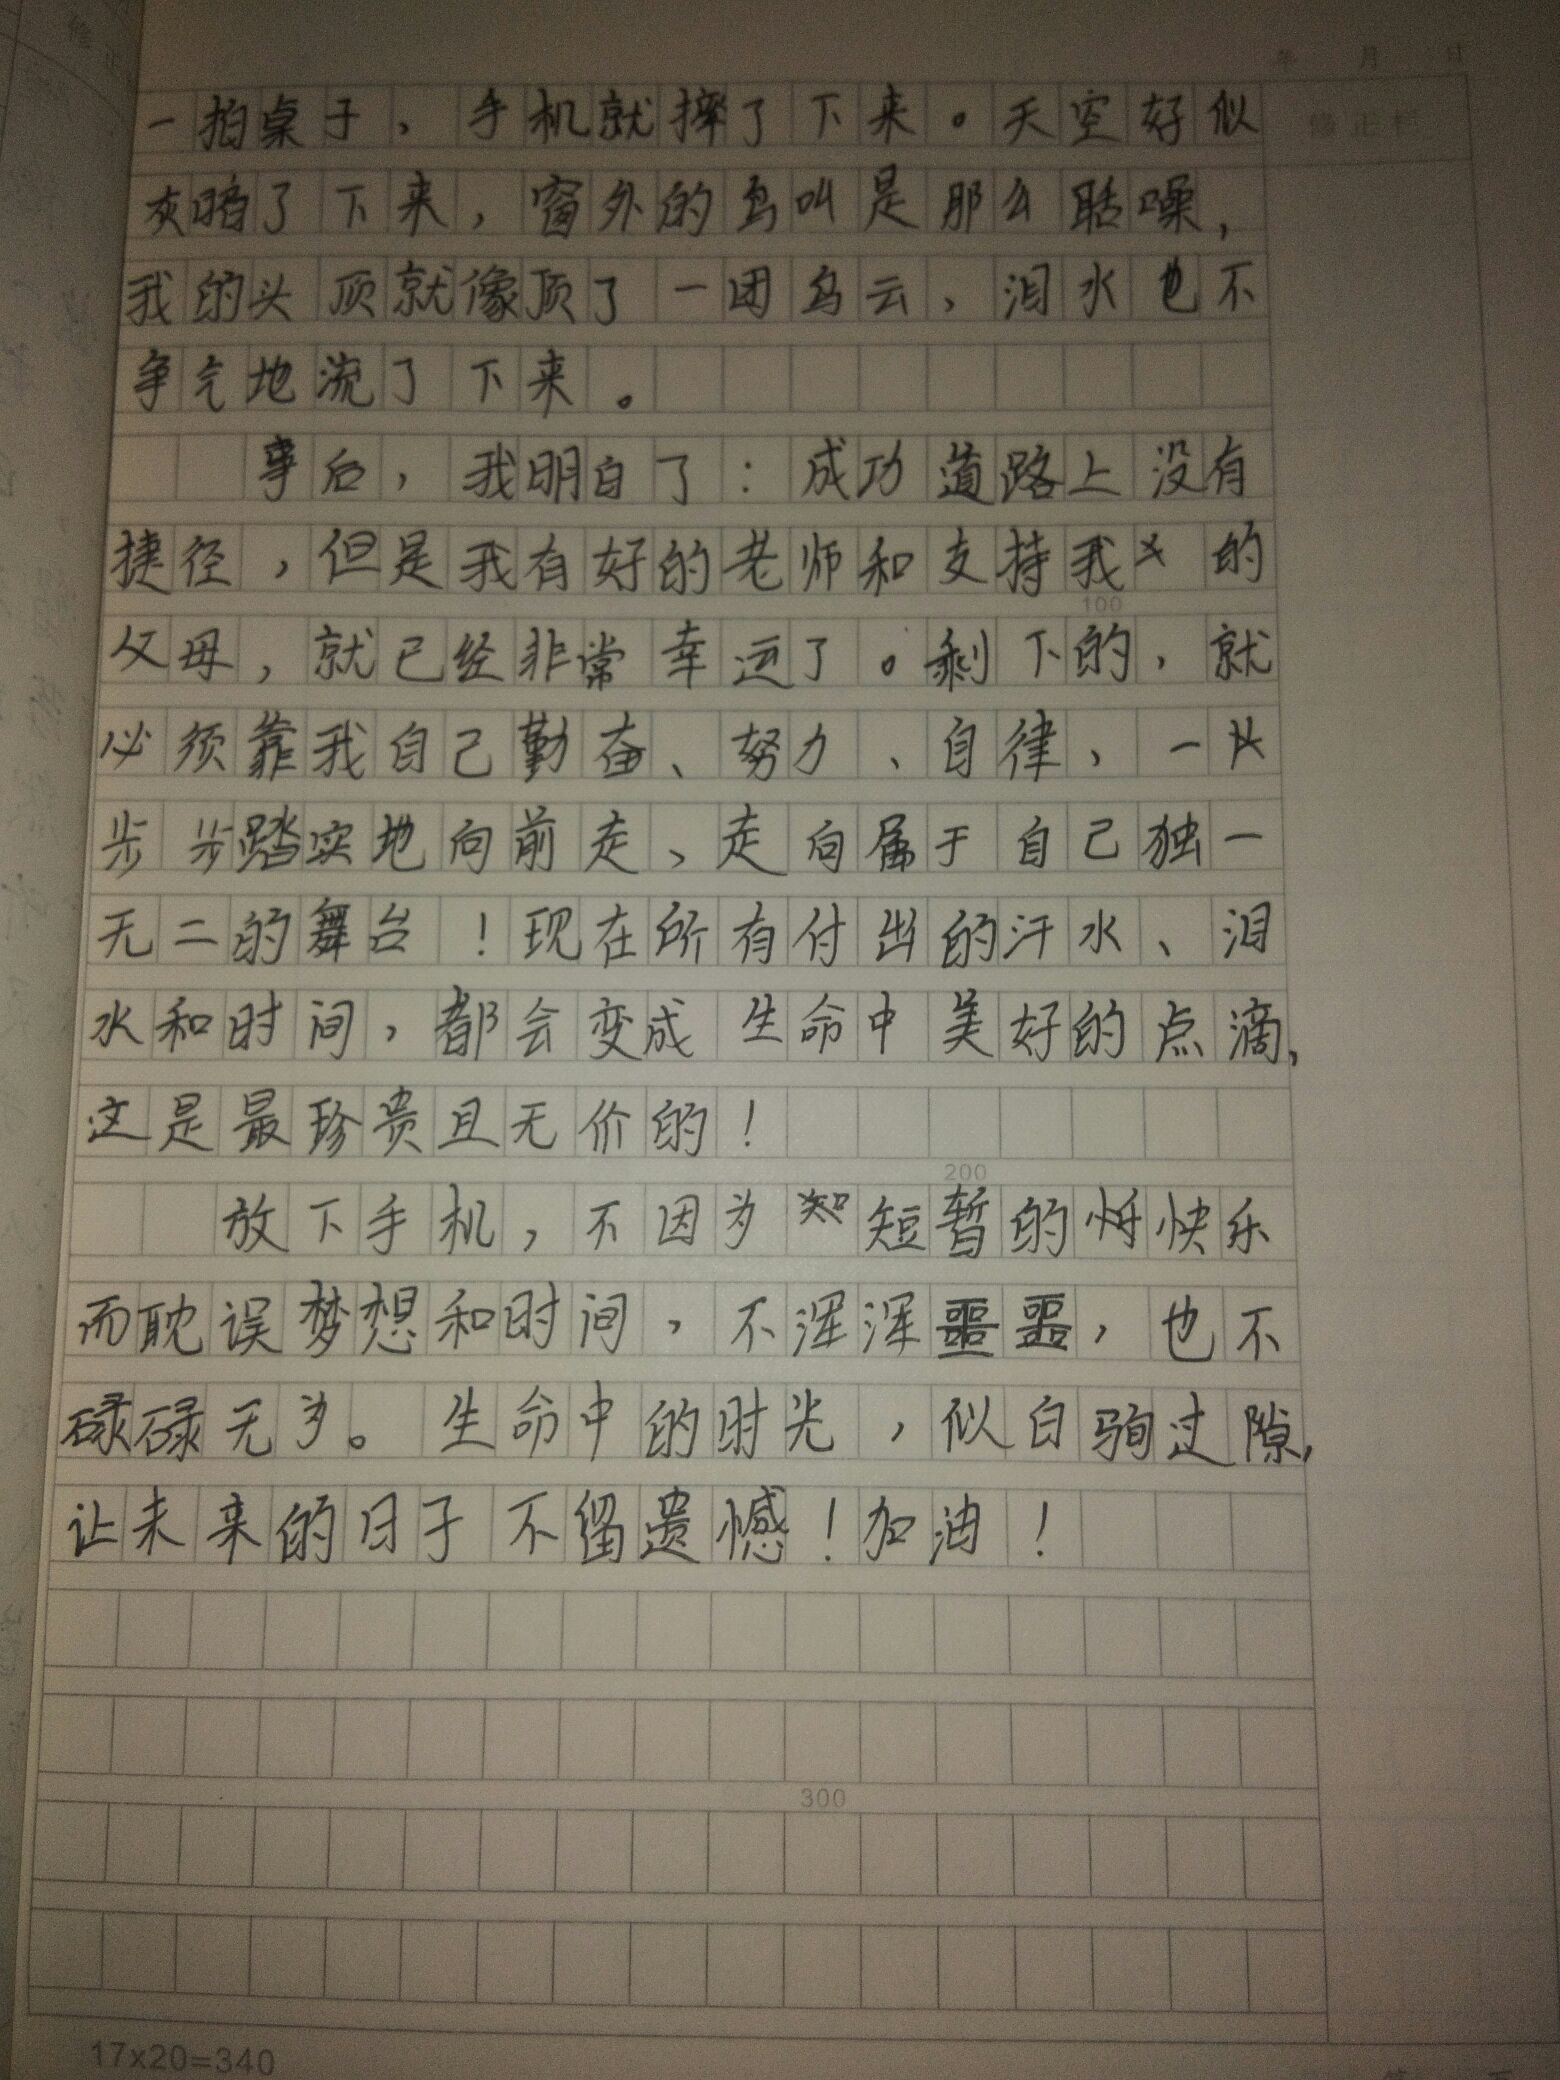 年 月 日
修正栏
一拍桌子，手机就摔了下来。天空好似
灰暗了下来，窗外的鸟叫是那么聒噪，
我的头顶就像顶了一团乌云，泪水也不
争气地流了下来。
事后，我明白了：成功道路上没有
捷径，但是我有好的老师和支持我的
100
父母，就已经非常幸运了。剩下的，就
必须靠我自己勤奋、努力、自律，一
步步踏实地向前走，走向属于自己独一
无二的舞台！现在所有付出的汗水、泪
水和时间，都会变成生命中美好的点滴，
这是最珍贵且无价的！
200
放下手机，不因为短暂的快乐
而耽误梦想和时间，不浑浑噩噩，也不
碌碌无为。生命中的时光，似白驹过隙，
让未来的日子不留遗憾！加油！
300
17x20=340